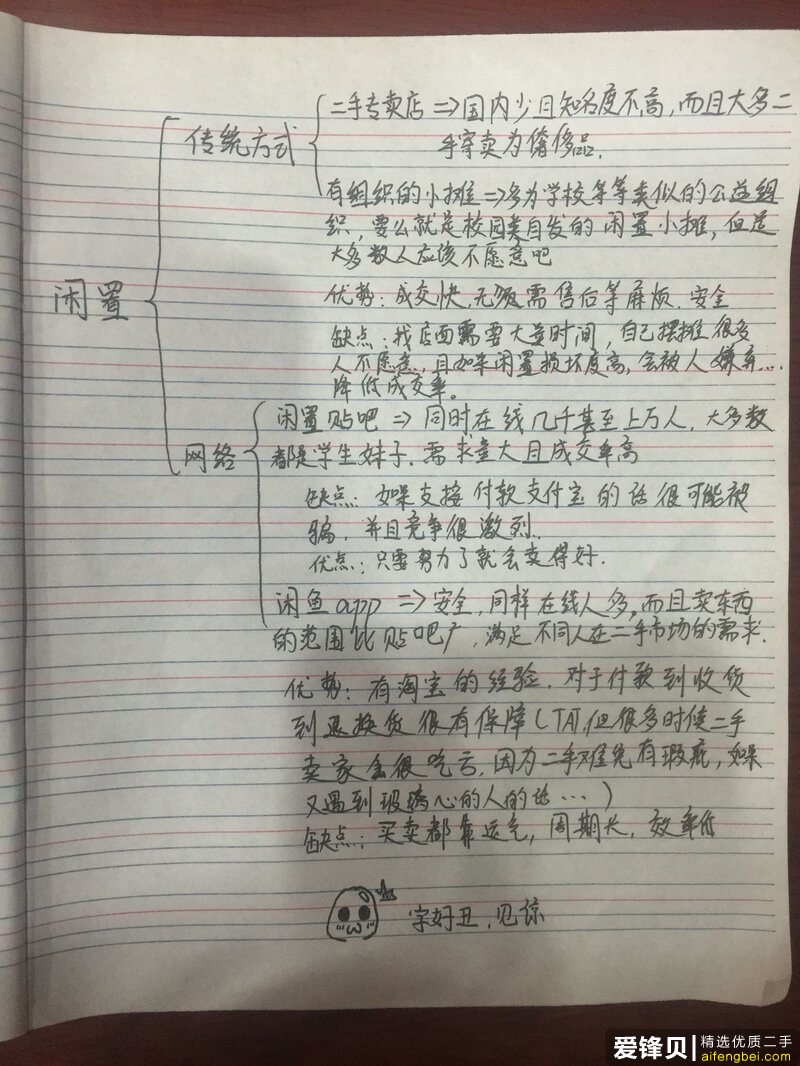 二手专卖店 => 国内少且知名度不高,而且大多二
手寄卖为奢侈品.
传统方式
有组织的小摊 => 多为学校等等类似的公益组
织,要么就是校园类自发的闲置小摊,但是
大多数人应该不愿意吧
闲置
优势:成交快,无须需售后等麻烦.安全
缺点:找店面需要大量时间,自己摆摊很多
人不愿意,且如果闲置损坏度高,会被人嫌弃…
降低成交率。
闲置贴吧 => 同时在线几千甚至上万人,大多数
网络
都是学生妹子.需求量大且成交率高
缺点:如果支接付款支付宝的话很可能被
骗,并且竞争很激烈.
优点:只要努力了就会卖得好.
闲鱼app => 安全,同样在线人多,而且卖东西
的范围比贴吧广,满足不同人在二手市场的需求.
优势:有淘宝的经验.对于付款到收货
到退换货很有保障(TAT,但很多时候二手
卖家会很吃亏,因为二手难免有瑕疵,如果
又遇到玻璃心的人的话…)
缺点:买卖都靠运气,周期长,效率低
字好丑,见谅
爱锋贝 精选优质二手
aifengbei.com